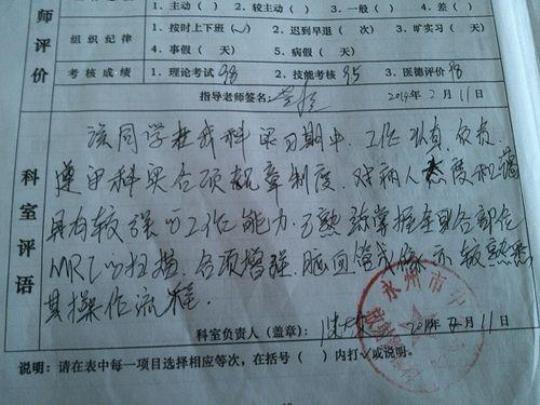 师评价
1、主动（ ） 2、较主动（ ） 3、一般（ ） 4、差（ ）
组织纪律
1、按时上下班（✓） 2、迟到早退（ 次） 3、旷实习（ 天）
4、事假（ 天） 5、病假（ 天）
考核成绩 1、理论考试98 2、技能考核95 3、医德评价98
指导老师签名： 2014年2月11日
科室评语
该同学在我科实习期中，工作认真，负责，
遵守科室各项规章制度，对病人态度和蔼
具有较强的工作能力，已熟练掌握全身各部位
MRI的扫描，各项增强，脑血管成像亦较熟悉
其操作流程．
科室负责人（盖章）： 2014年2月11日
永州市中
说明：请在表中每一项目选择相应等次，在括号（ ）内打✓或说明。